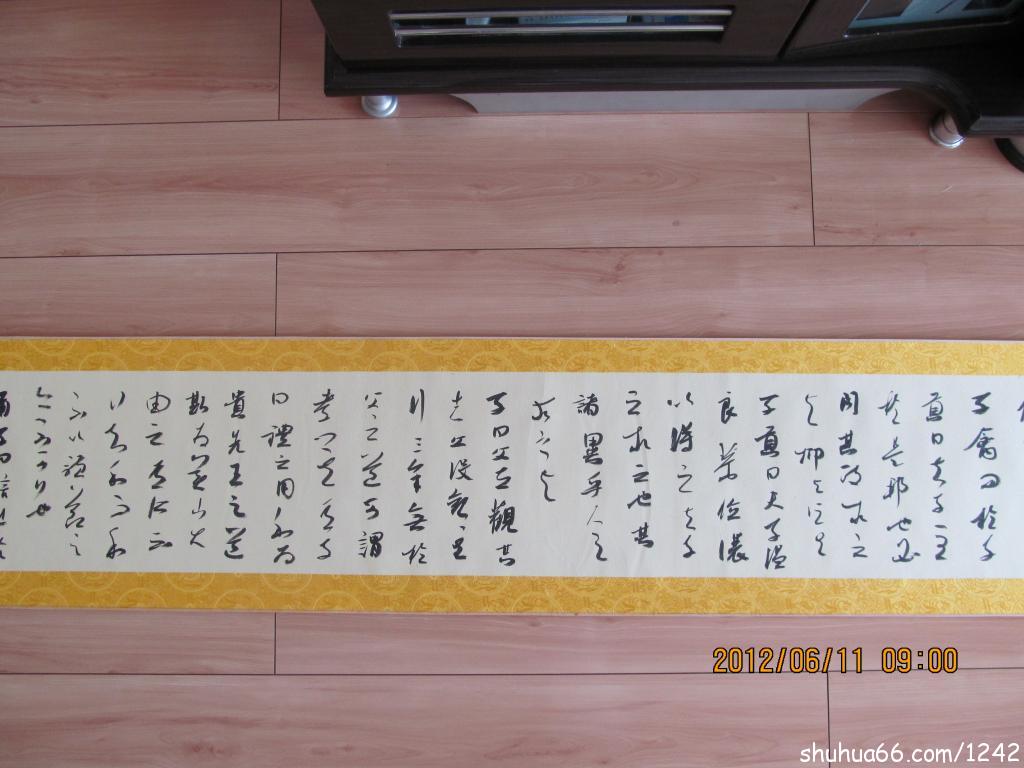 子禽问於子
貢曰夫子至
於是邦也必
聞其政求之
与抑与之与
子貢曰夫子温
良恭俭讓
以得之夫子
之求之也其
諸異乎人之
求之与
子曰父在觀其
志父没觀其
行三年無改於
父之道可謂
孝矣有子
曰禮之用和为
貴先王之道
斯为美小大
由之有所不
行知和而和
不以禮節之
亦不可行也
2012/06/11 09:00
shuhua66.com/1242